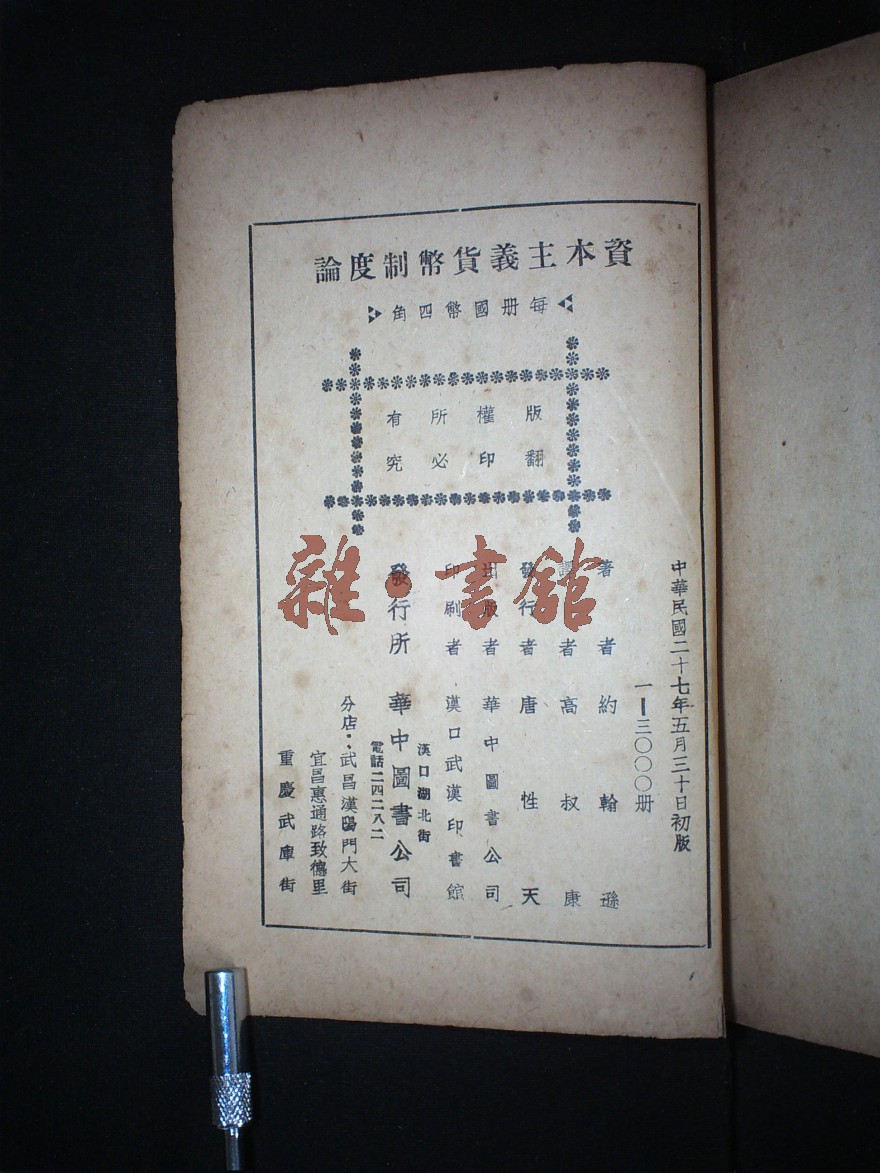 資本主義貨幣制度論
每册國幣四角
版權所有
翻印必究
中華民國二十七年五月三十日初版
一—三〇〇〇册
著者約翰遜
譯者高叔康
發行者唐性天
出版者華中圖書公司
印刷者漢口武漢印書館
漢口湖北街
發行所華中圖書公司
電話二四二八二
分店·武昌漢陽門大街
宜昌惠通路致德里
重慶武庫街
雜·書館